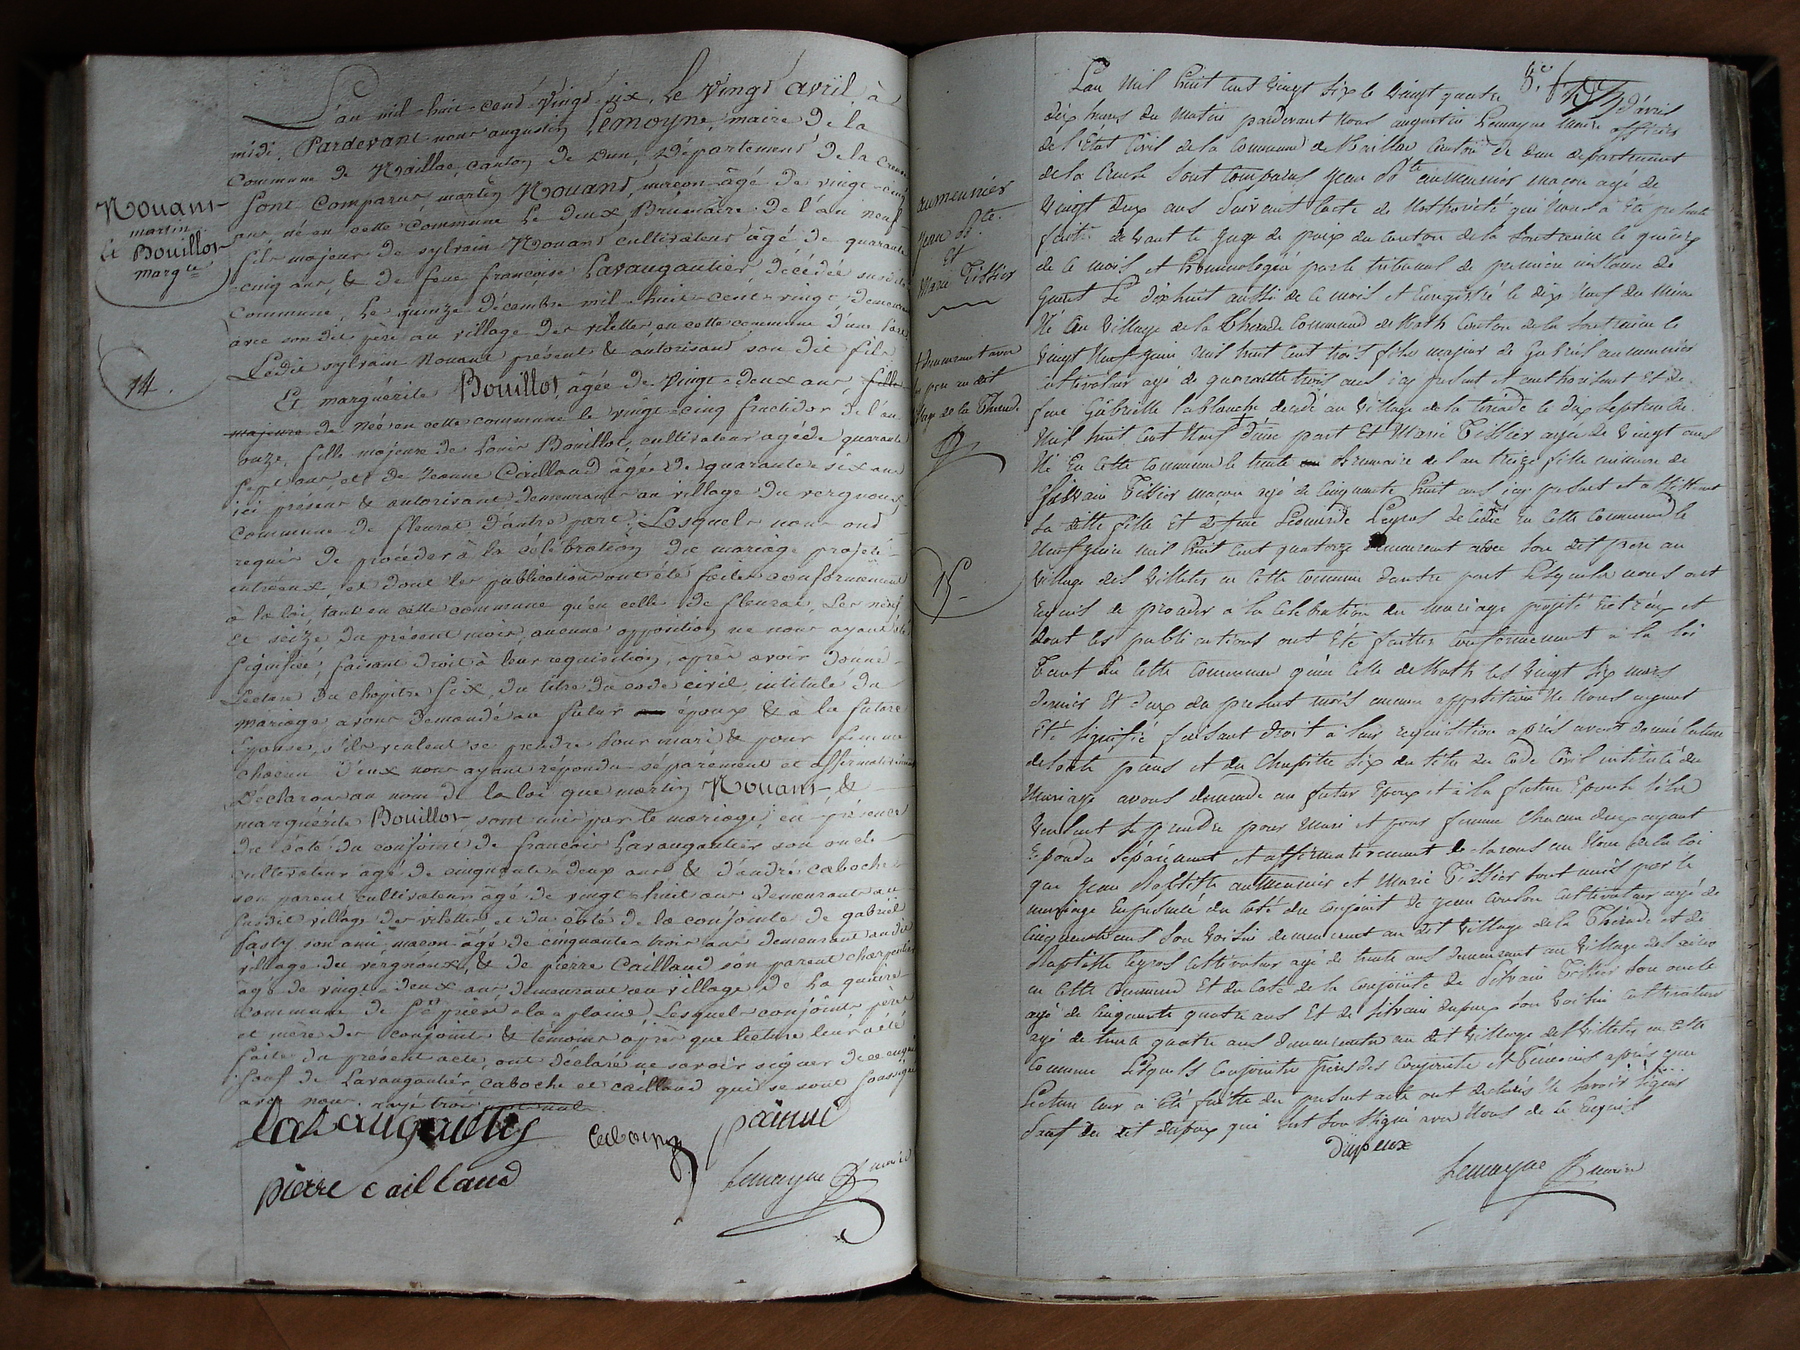 Nouant
martin
& Bouillot
marg.te
14.
L'an mil-huit-cent-vingt six, le vingt avril, à
midi, Pardevant-nous augustin Lemoyne, maire de la
commune de Naillac, canton de Dun, Département de la Creuse
sont comparus martin Nouant, maçon âgé de vingt-cinq
ans né en cette commune le deux Brumaire de l'an neuf
fils majeur de sylvain Nouant cultivateur âgé de quarante
cinq ans, & de feue françoise Lavaugautier décédée susdite
commune, le quinze décembre mil-huit-cent-vingt, demeurant
avec son dit père au village des vilettes en cette commune d'une part
Ledit sylvain Nouant présent & autorisant son dit fils
Et marguérite Bouillot, âgée de vingt-deux ans fille
majeure de née en cette commune le vingt-cinq fructidor de l'an
onze, fille majeure de Louis Bouillot, cultivateur agé de quarante
sept ans, et de Jeanne Caillaud âgée de quarante six ans
ici présens & autorisant demeurants au village du vergnoux
commune de fleurat d'autre part; Lesquels nous ont
requis de procéder à la célébration du mariage projeté
entreeux, et dont les publications ont été faites conformément
à la loi, tant en cette commune qu'en celle de fleurat, les neuf
et seize du présent mois, aucune opposition ne nous ayant été
signifiée, faisant droit à leur requisition, après avoir donné
Lecture du chapitre six, du titre du code civil, intitulé du
mariage avons demandé au futur époux & à la future
épouse, s'ils veulent se prendre pour mari & pour femme
chacun d'eux nous ayant répondu séparément et affirmativement
Déclarons au nom de la loi que martin Nouant &
marguérite Bouillot sont unis par le mariage; en présence
du côté du conjoint de francois Lavaugautier son oncle
cultivateur agé de cinquante deux ans & d'andré caboche
son parent cultivateur âgé de vingt-huit ans demeurants au
susdit village des vilettes et du côté de la conjointe de gabriël
fasty son ami maçon âgé de cinquante trois ans demeurant au dit
village du vergnoux, & de pierre Caillaud son parent charpentier
âgé de vingt-deux ans demeurant au village de
commune de la plaine, Lesquels conjoints père
et mère des conjoints & témoins après que lecture leur a été
faite du présent acte, ont déclaré ne savoir signer de ce enquis
sauf de Lavaugautier caboche et caillaud qui se sont soussignés
avec nous. rayé trois
lavaugautier
pierre caillaud
Lemoyne maire
8.e
aumeunier
Jean Bt.te
Et
Marie Tissier
+ demeurant avec
son pere au dit
village de la Therade
15.
L'an mil huit cent vingt six le vingt quatre d'avril
dix heures du matin pardevant nous augustin Lemoyne maire officier
de l'État civil de la commune de Naillac canton de dun departement
de la Creuse sont comparus Jean Bte aumeunier maçon agé de
vingt deux ans suivant l'acte de Notoriété qui nous a été présenté
faite devant le Juge de paix du canton de la Souterraine le quinze
de ce mois et homologué par le tribunal de premiere instance de
Gueret le dix huit aussi de ce mois et enregistré le dix neuf du même
Né au village de la Therade commune de Noth canton de la Souteraine le
vingt neuf juin mil huit cent trois fils majeur de Gabriel aumeunier
cultivateur agé de quarante trois ans icy présent et authorisant et de
feue Gabrielle lablanche decedé au village de la tirade le dix Septembre
mil huit cent neuf d'une part Et Marie Tissier agée de vingt ans
Né En cette commune le trente Brumaire de l'an treize fille mineure de
Silvain Tissier macon agé de cinquante huit ans icy présent et assistant
sa ditte fille et de feue Léonarde Leyros décédée en cette commune le
neuf juin mil huit cent quatorze demeurent avec son dit pere au
village des villettes en cette commune d'autre part Lesquels nous ont
requis de proceder a la celebration du mariage projetté Entr'eux et
dont les publications ont été faittes conformement à la loi
tant en cette commune qu'en celle de Noth les vingt six mars
dernier et deux du présent mois aucune opposition ne nous ayant
été signifié faisant droit à leur requisition après avoir donné lecture
et du Chapitre six du titre du Code Civil intitulé du
Mariage avons demandé au futur Epoux et à la future Epouse s'ils
veulent se prendre pour mari et pour femme chacun deux ayant
repondu Séparement et affirmativement declarons au Nom de la loi
que Jean Baptiste aumeunier et Marie Tissier sont unis par le
mariage En présence du coté du conjoint de Jean coulon cultivateur agé de
cinquante ans son voisin demeurent au dit village de la Thérade et de
Baptiste Leyros cultivateur agé de trente ans demeurant au village
en cette commune Et du coté de la conjointe de Silvain Tissier son oncle
agé de cinquante quatre ans Et de Silvain dupeux son voisin cultivateur
agé de trente quatre ans demeurants au dit village des Villettes en cette
commune Lesquels conjoints peres des conjoints et Témoins après que
Lecture leur a été faitte du présent acte ont declarés ne savoir signer
Sauf du dit dupeux qui s'est Soussigné avec nous de ce Enquis
dupeux
Lemoyne maire